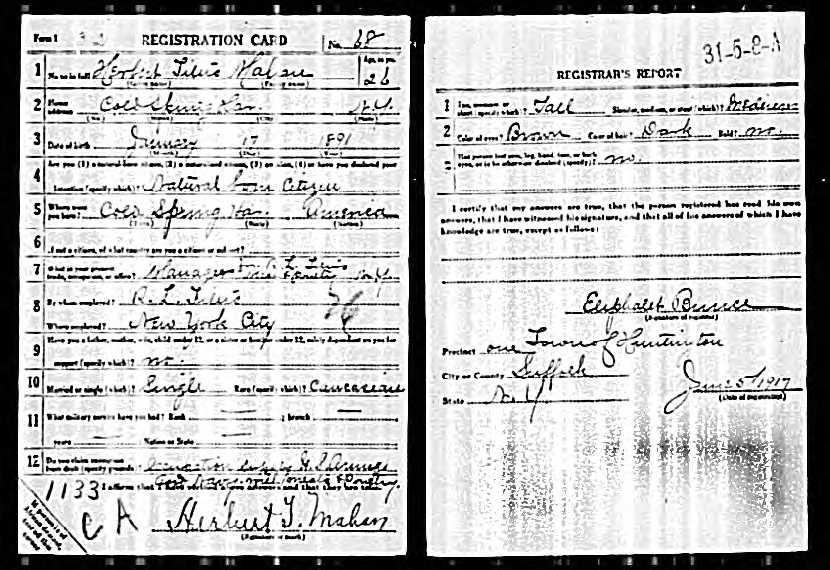 Form 1
REGISTRATION CARD No. 68
1 Name in full Herbert Titus Mahan Age, in yrs. 26
2 Home address Cold Spring Har. N.Y.
3 Date of birth January 17 1891
4 Are you (1) a natural born citizen, (2) a naturalized citizen, (3) an alien, (4) or have you declared your
intention (specify which)? Natural born Citizen
5 Where were you born? Cold Spring Har. America
6 If not a citizen, of what country are you a citizen or subject?
7 What is your present trade, occupation, or office? Manager
8 By whom employed? R. L. Titus
Where employed? New York City
9 Have you a father, mother, wife, child under 12, or a sister or brother under 12, solely dependent on you for
support (specify which)? no.
10 Married or single (which)? Single Race (specify which)? Caucasian
11 What military service have you had? Rank — ; branch —
years — Nation or State —
12 Do you claim exemption from draft (specify grounds)? Occupation
1133 I affirm that I have verified above answers and that they are true.
C A Herbert T. Mahan
(Signature or mark)
31-5-8-A
REGISTRAR'S REPORT
1 Tall, medium, or short (specify which)? Tall Slender, medium, or stout (which)? Medium
2 Color of eyes? Brown Color of hair? Dark Bald? no.
3 Has person lost arm, leg, hand, foot, or both eyes, or is he otherwise disabled (specify)? no.
I certify that my answers are true, that the person registered has read his own
answers, that I have witnessed his signature, and that all of his answers of which I have
knowledge are true, except as follows:
Eliphalet Bunce
(Signature of registrar)
Precinct one Town of Huntington
City or County Suffolk
State N.Y. June 5/1917
(Date of registration)